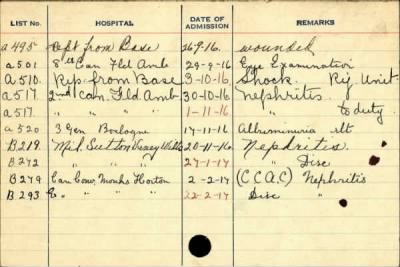 NO. HOSPITAL DATE OF ADMISSION REMARKS
a495 Rept from Base 26-9-16. wounded
a501 8th Can Fld Amb 29-9-16 Eye Examination
a510 Rep from Base 3-10-16 Shock. Rij. Unit
a517 2nd Can. Fld. Amb 30-10-16 Nephritis.
a517. " " " " 1-11-16 " to duty.
a520 3 Gen Boulogne 17-11-16 Albuminuria
B219 Mil. Sutton Veney Wilts 20-11-16 Nephritis.
B272 " " " 27-1-17 " Disc
B279 Can Conv. Monks Horton 2-2-17 (C C A C) Nephritis
B293 " " " 22-2-17 Disc "